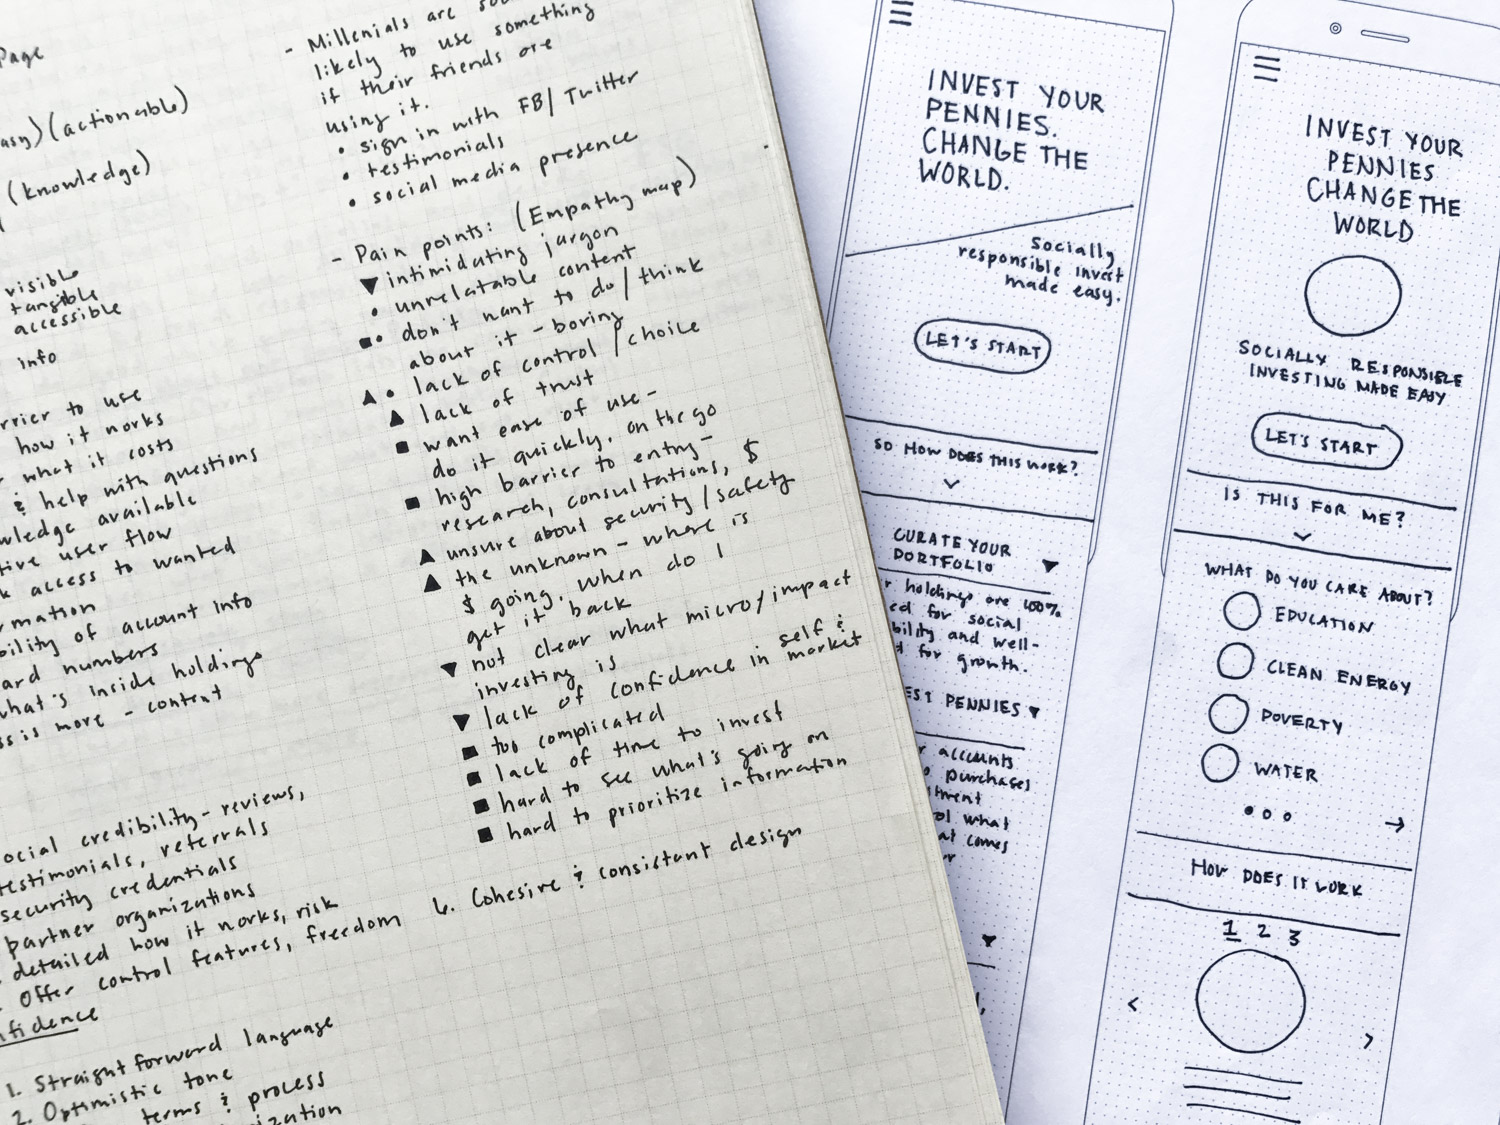 Page
(actionable)
(knowledge)
visible
tangible
accessible
info
to use
how it works
what it costs
& help with questions
available
user flow
access to wanted
of account info
numbers
what's inside holdings
is more - content
credibility - reviews,
testimonials, referrals
security credentials
partner organizations
detailed how it works, risk
Offer control features, freedom
1. Straight forward language
2. Optimistic tone
terms & process
- Millenials are
likely to use something
if their friends are
using it.
• sign in with FB/Twitter
• testimonials
• social media presence
- Pain points: (Empathy map)
▼ intimidating jargon
• unrelatable content
■• don't want to do/think
about it - boring
▲• lack of control/choice
▲ lack of trust
■ want ease of use -
do it quickly, on the go
■ high barrier to entry -
research, consultations, $
▲ unsure about security/safety
▲ the unknown - where is
$ going, when do I
get it back
▼ not clear what micro/impact
investing is
▼ lack of confidence in self &
market
■ too complicated
■ lack of time to invest
■ hard to see what's going on
■ hard to prioritize information
6. Cohesive & consistant design
INVEST YOUR
PENNIES.
CHANGE THE
WORLD.
Socially
responsible invest
made easy.
LET'S START
SO HOW DOES THIS WORK?
CURATE YOUR
PORTFOLIO
holdings are 100%
for social
and well-
for growth.
PENNIES
accounts
purchases
what
comes
INVEST YOUR
PENNIES
CHANGE THE
WORLD
SOCIALLY RESPONSIBLE
INVESTING MADE EASY
LET'S START
IS THIS FOR ME?
WHAT DO YOU CARE ABOUT?
EDUCATION
CLEAN ENERGY
POVERTY
WATER
HOW DOES IT WORK
1 2 3